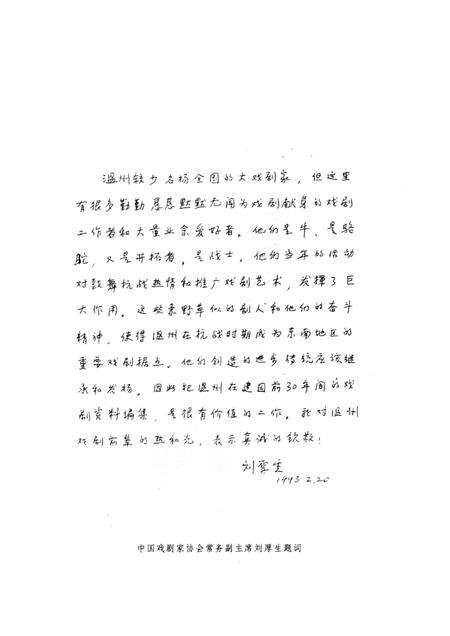 温州较少名扬全国的大戏剧家，但这里
有很多勤勤恳恳默默无闻为戏剧献身的戏剧
工作者和大量业余爱好者。他们是牛，是骆
驼，又是开拓者，是战士。他们当年的活动
对鼓舞抗战热情和推广戏剧艺术，发挥了巨
大作用。这些素野草似的剧人和他们的奋斗
精神，使得温州在抗战时期成为东南地区的
重要戏剧据点。他们创造的进步传统应该继
承和发扬。因此把温州在建国前30年间的戏
剧资料编集，是很有价值的工作。我对温州
戏剧前辈的热和光，表示真诚的钦敬！
刘厚生
1993.2.20
中国戏剧家协会常务副主席刘厚生题词